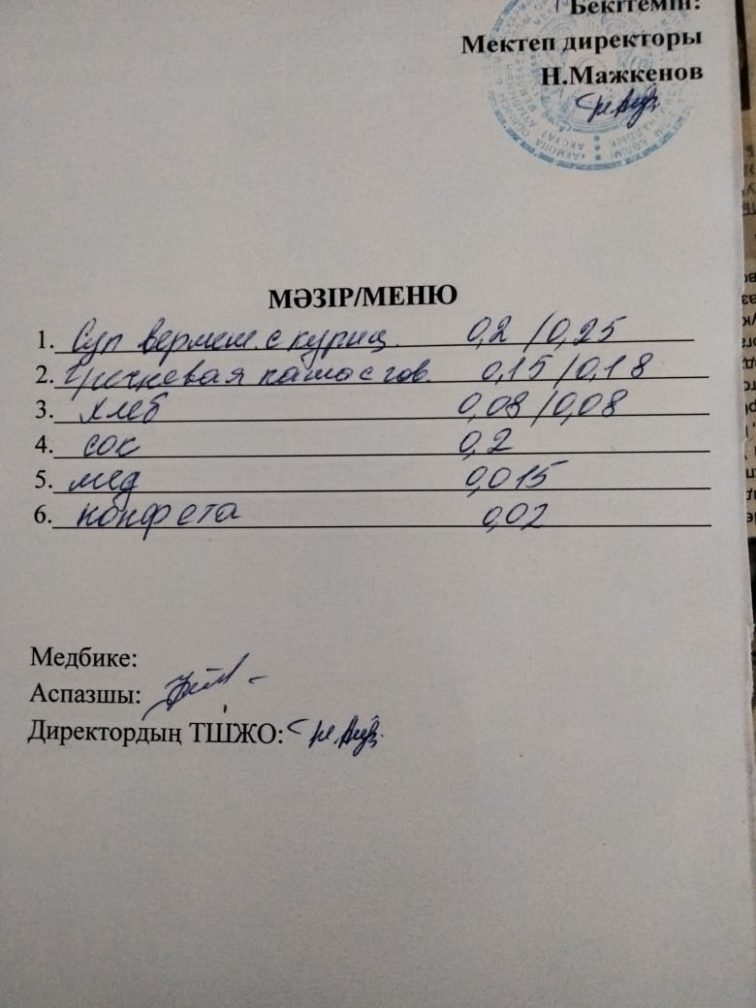 Бекітемін:
Мектеп директоры
Н.Мажкенов
МӘЗІР/МЕНЮ
1. Суп вермиш. с куриц. 0,2 /0,25
2. Гречневая каша с гов. 0,15 /0,18
3. хлеб 0,08 /0,08
4. сок 0,2
5. мед 0,015
6. конфета 0,02
Медбике:
Аспазшы:
Директордың ТШЖО: